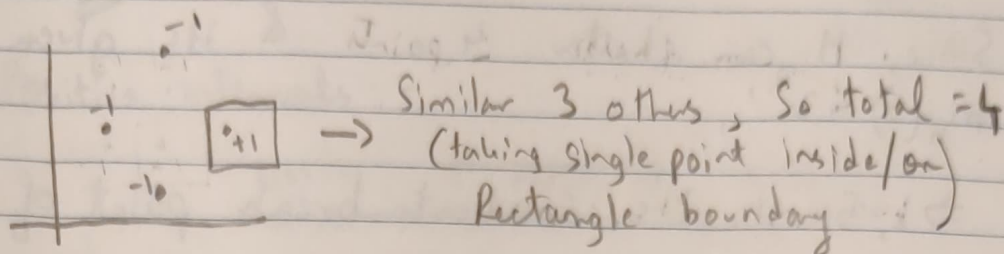 -1
-1
+1
-1
→ Similar 3 others, So total = 4
(taking single point inside/on)
Rectangle boundary